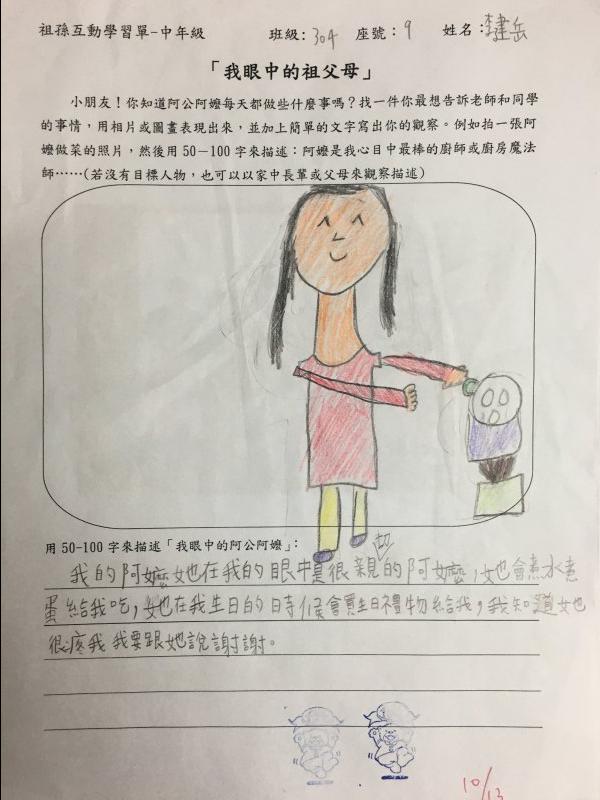 祖孫互動學習單-中年級 班級: 304 座號: 9 姓名: 李建岳
「我眼中的祖父母」
小朋友！你知道阿公阿嬤每天都做些什麼事嗎？找一件你最想告訴老師和同學
的事情，用相片或圖畫表現出來，並加上簡單的文字寫出你的觀察。例如拍一張阿
嬤做菜的照片，然後用 50－100 字來描述：阿嬤是我心目中最棒的廚師或廚房魔法
師……(若沒有目標人物，也可以以家中長輩或父母來觀察描述)
用 50-100 字來描述「我眼中的阿公阿嬤」：
我的阿嬤她在我的眼中是很親切的阿嬤，她會煮水煮
蛋給我吃，她在我生日的時候會買生日禮物給我，我知道她也
很疼我我要跟她說謝謝。
10/13